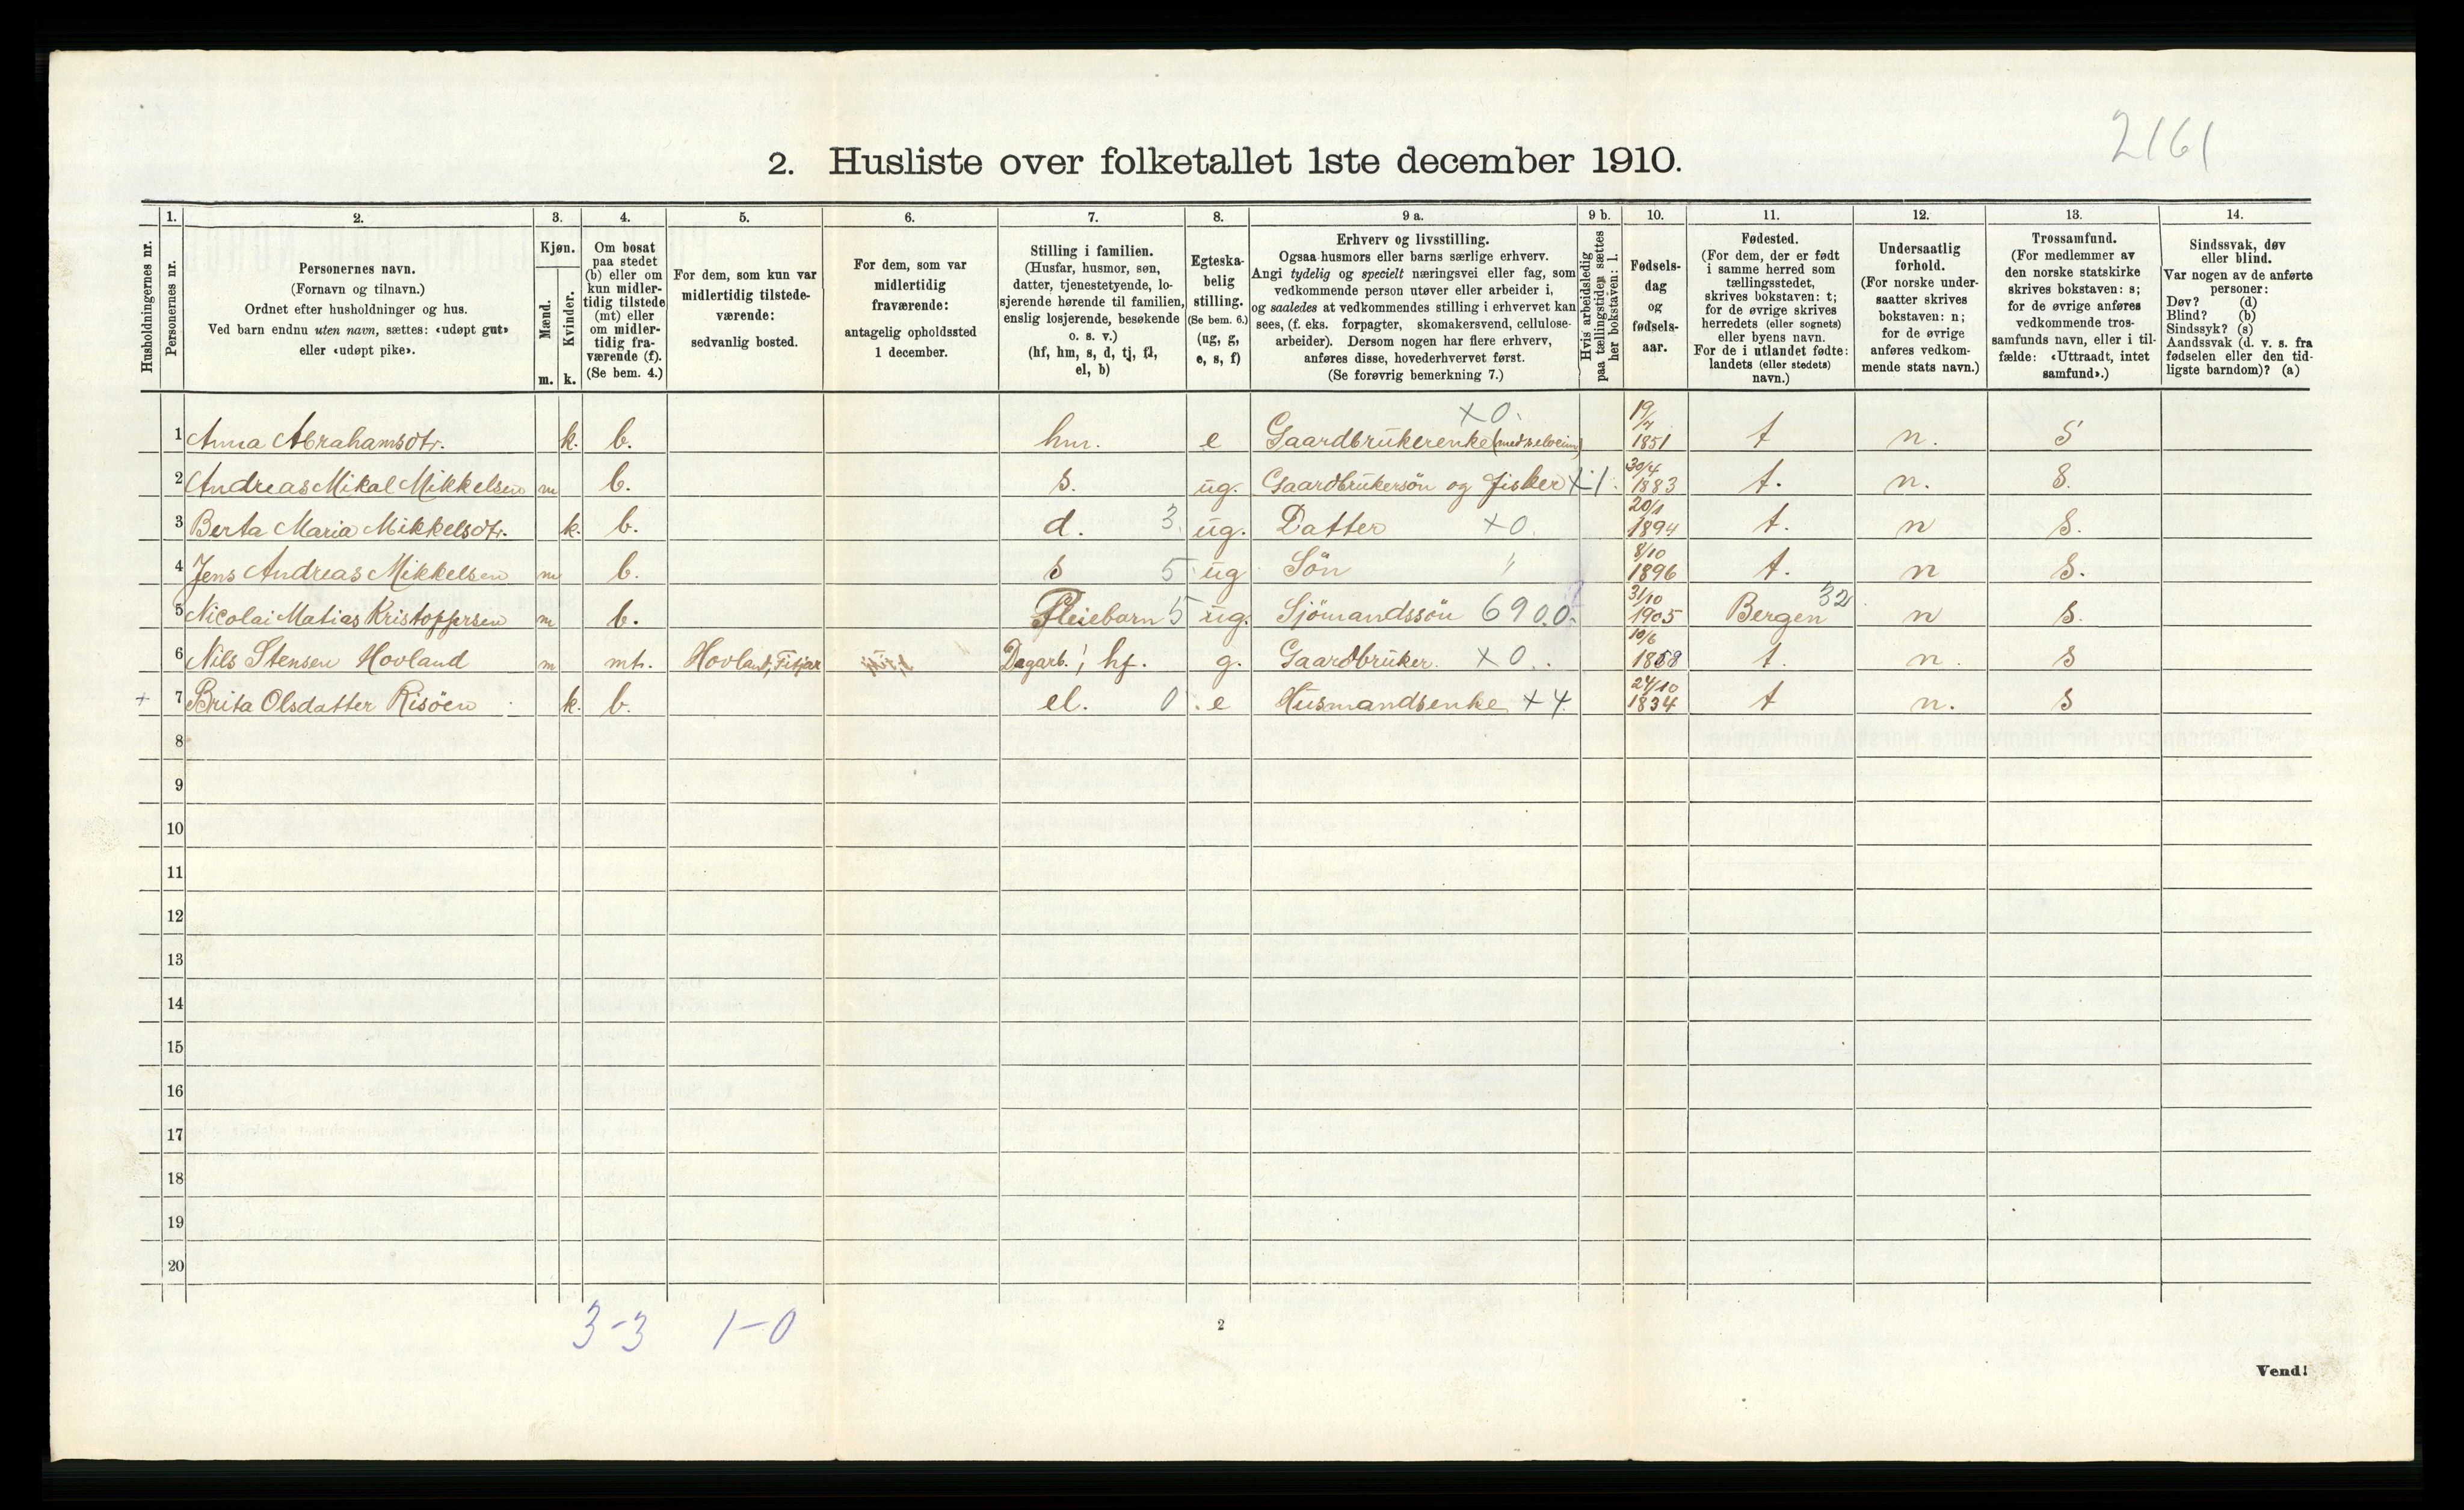 2161
2. Husliste over folketallet 1ste december 1910.
1. 2. 3. 4. 5. 6. 7. 8. 9 a. 9 b. 10. 11. 12. 13. 14.
Husholdningernes nr.
Personernes nr.
Personernes navn.
(Fornavn og tilnavn.)
Ordnet efter husholdninger og hus.
Ved barn endnu uten navn, sættes: «udøpt gut»
eller «udøpt pike».
Kjøn.
Mænd.
Kvinder.
m. k.
Om bosat
paa stedet
(b) eller om
kun midler-
tidig tilstede
(mt) eller
om midler-
tidig fra-
værende (f).
(Se bem. 4.)
For dem, som kun var
midlertidig tilstede-
værende:
sedvanlig bosted.
For dem, som var
midlertidig
fraværende:
antagelig opholdssted
1 december.
Stilling i familien.
(Husfar, husmor, søn,
datter, tjenestetyende, lo-
sjerende hørende til familien,
enslig losjerende, besøkende
o. s. v.)
(hf, hm, s, d, tj, fl,
el, b)
Egteska-
belig
stilling.
(Se bem. 6.)
(ug, g,
e, s, f)
Erhverv og livsstilling.
Ogsaa husmors eller barns særlige erhverv.
Angi tydelig og specielt næringsvei eller fag, som
vedkommende person utøver eller arbeider i,
og saaledes at vedkommendes stilling i erhvervet kan
sees, (f. eks. forpagter, skomakersvend, cellulose-
arbeider). Dersom nogen har flere erhverv,
anføres disse, hovederhvervet først.
(Se forøvrig bemerkning 7.)
Hvis arbeidsledig
paa tællingstiden sættes
her bokstaven: l.
Fødsels-
dag
og
fødsels-
aar.
Fødested.
(For dem, der er født
i samme herred som
tællingsstedet,
skrives bokstaven: t;
for de øvrige skrives
herredets (eller sognets)
eller byens navn.
For de i utlandet fødte:
landets (eller stedets)
navn.)
Undersaatlig
forhold.
(For norske under-
saatter skrives
bokstaven: n;
for de øvrige
anføres vedkom-
mende stats navn.)
Trossamfund.
(For medlemmer av
den norske statskirke
skrives bokstaven: s;
for de øvrige anføres
vedkommende tros-
samfunds navn, eller i til-
fælde: «Uttraadt, intet
samfund».)
Sindssvak, døv
eller blind.
Var nogen av de anførte
personer:
Døv? (d)
Blind? (b)
Sindssyk? (s)
Aandssvak (d. v. s. fra
fødselen eller den tid-
ligste barndom)? (a)
1 Anna Abrahamsdtr. k. b. hm. e Gaardbrukerenke x0. 1851 t n. S
2 Andreas Mikal Mikkelsen m b. s. ug. Gaardbrukersön og Fisker x 1. 30/4 1883 t. n. S.
3 Berta Maria Mikkelsdtr. k. b. d. 3. ug. Datter x0. 20/1 1894 t. n S.
4 Jens Andreas Mikkelsen m b. s 5 ug Sön " 8/10 1896 t. n S.
5 Nicolai Matias Kristoffersen m b. Pleiebarn 5 ug. Sjömandssön 6900. 31/10 1905 Bergen 32 n S.
6 Nils Stensen Hovland m mt. Hovland, Fitjar Dagarb.; hf. g. Gaardbruker. x0. 10/6 1858 t. n. S
+ 7 Brita Olsdatter Risöen k. b. el. 0. e Husmandsenke x4. 24/10 1834 t n. S
8
9
10
11
12
13
14
15
16
17
18
19
20
3-3 1-0
2
Vend!